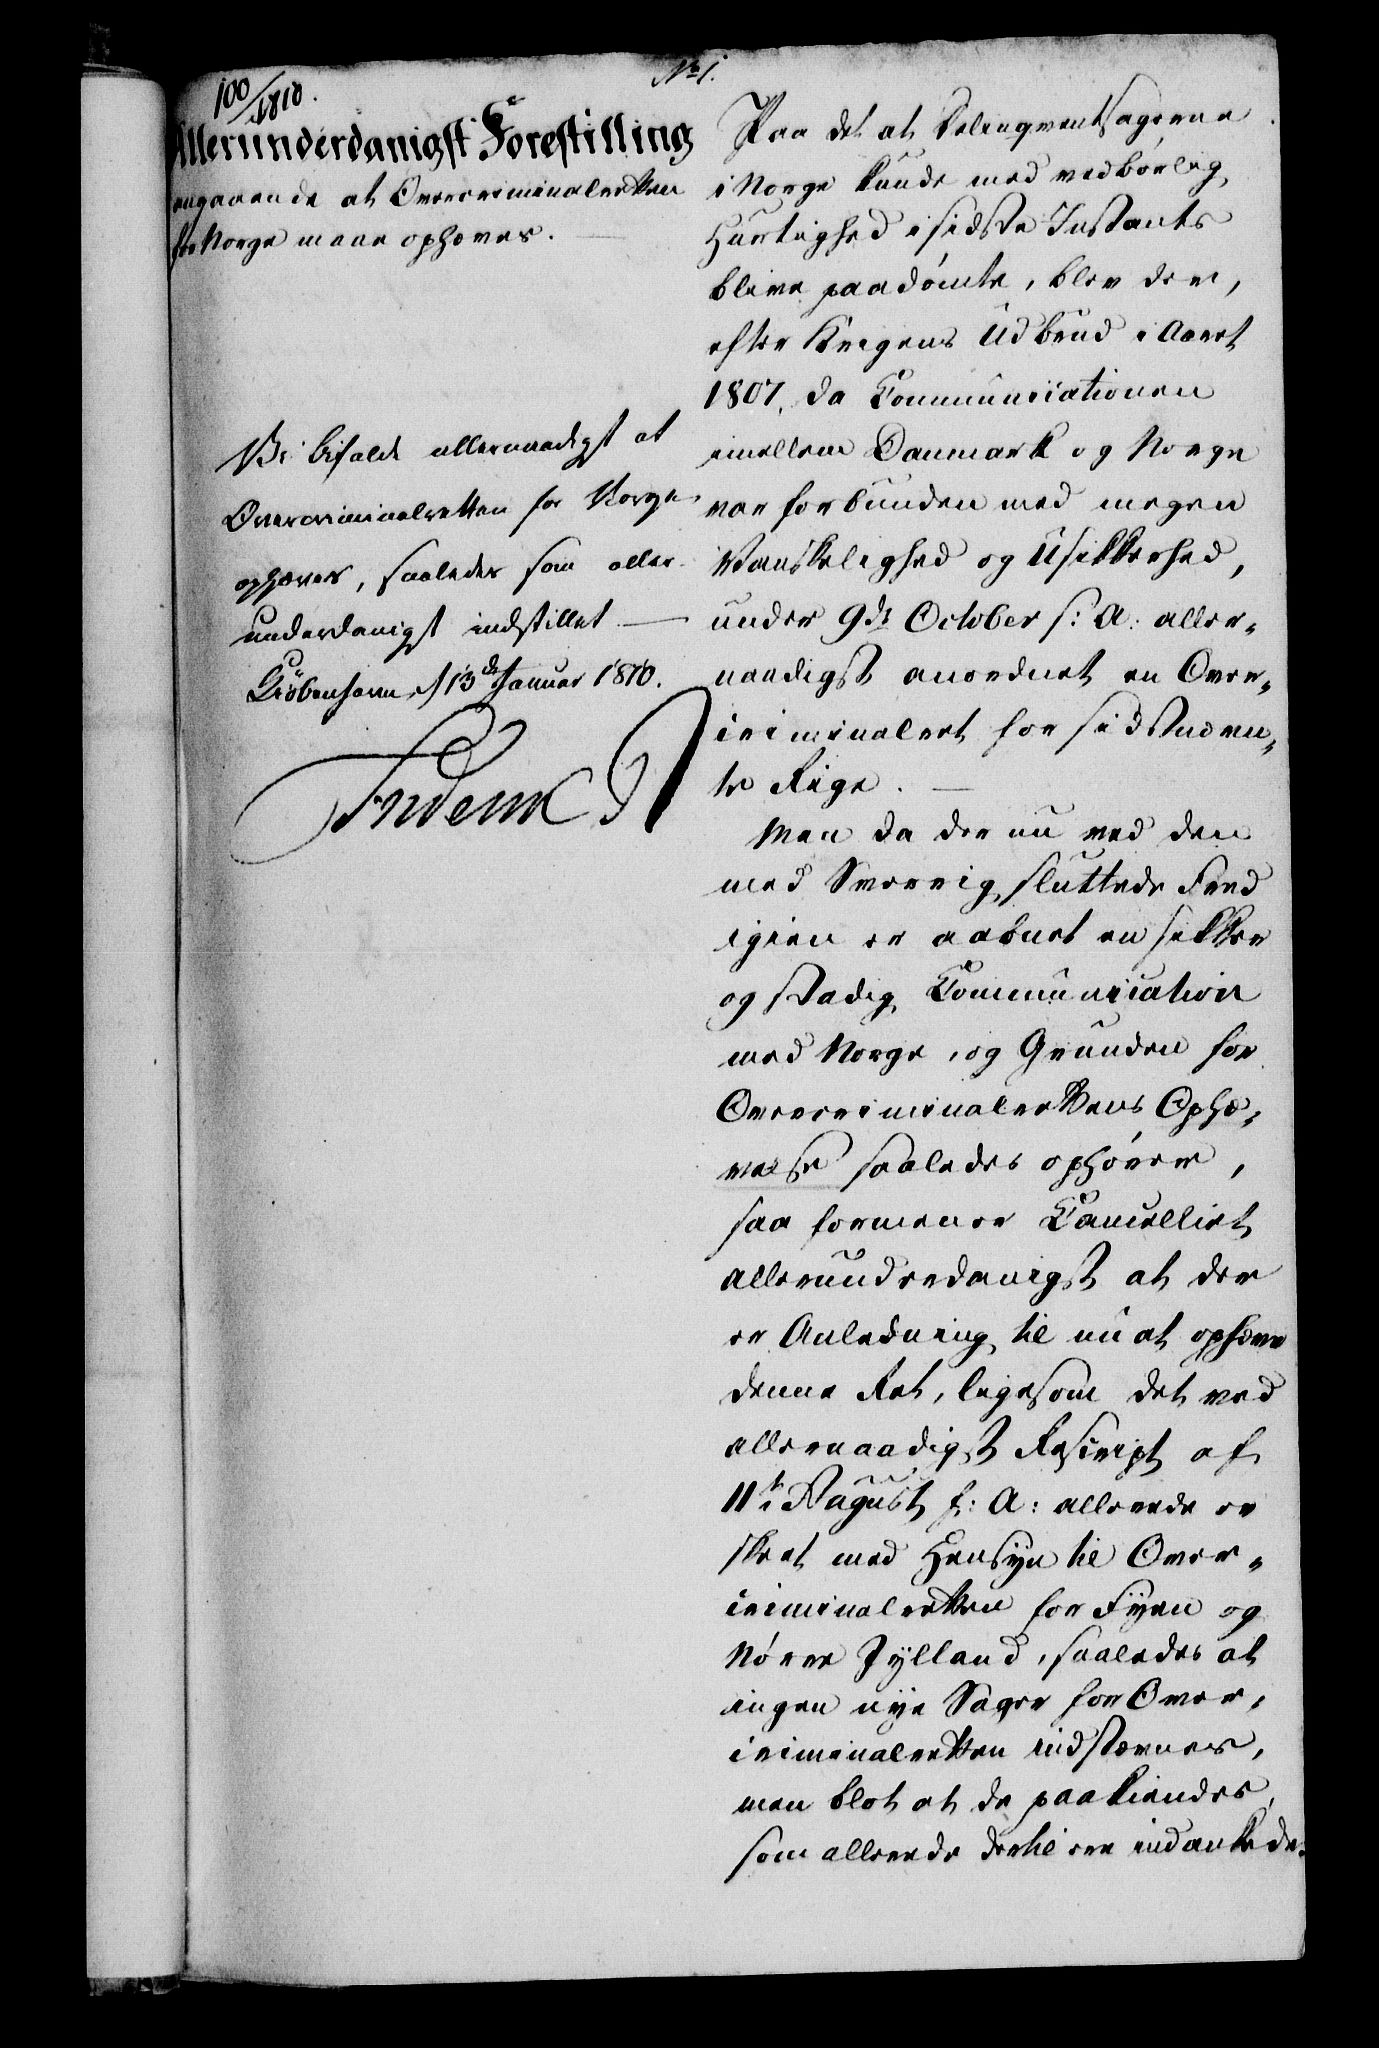 No 1.
100/1810.
Allerunderdanigst Forestilling
angaaende at Overcriminalretten
for Norge maae ophæves.
Vi bifalde allernaadigst at
Overcriminalretten for Norge
ophæves, saaledes som aller
underdanigst indstillet
Kiöbenhavn d 13de Januar 1810.
Frederik R
Paa det at Delinqventsagerne
i Norge kunde med vedbørlig
Hurtighed i sidste Instants
blive paadømte, blev der,
efter Krigens Udbrud i Aaret
1807, da Communicationen
imellem Danmark og Norge
var forbunden med megen
Vanskelighed og Usikkerhed,
under 9de October s: A: aller-
naadigst anordnet en Over-
criminalret for sidstnævn-
te Rige.
Men da der nu ved den
med Sverrig sluttede Fred
igien er aabnet en sikker
og stadig Communication
med Norge, og Grunden for
Overcriminalrettens Ophæ-
velse saaledes ophører,
saa formener Cancelliet
allerunderdanigst at der
er Anledning til nu at ophæve
denne Ret, ligesom det ved
allernaadigst Rescript af
11te August f: A: allerede er
skeet med Hensyn til Over-
criminalretten for Fyen og
Nørre Jylland, saaledes at
ingen nye Sager for Over-
criminalretten indstævnes,
men blot at de paakiendes,
som allerede dertil ere indankede.